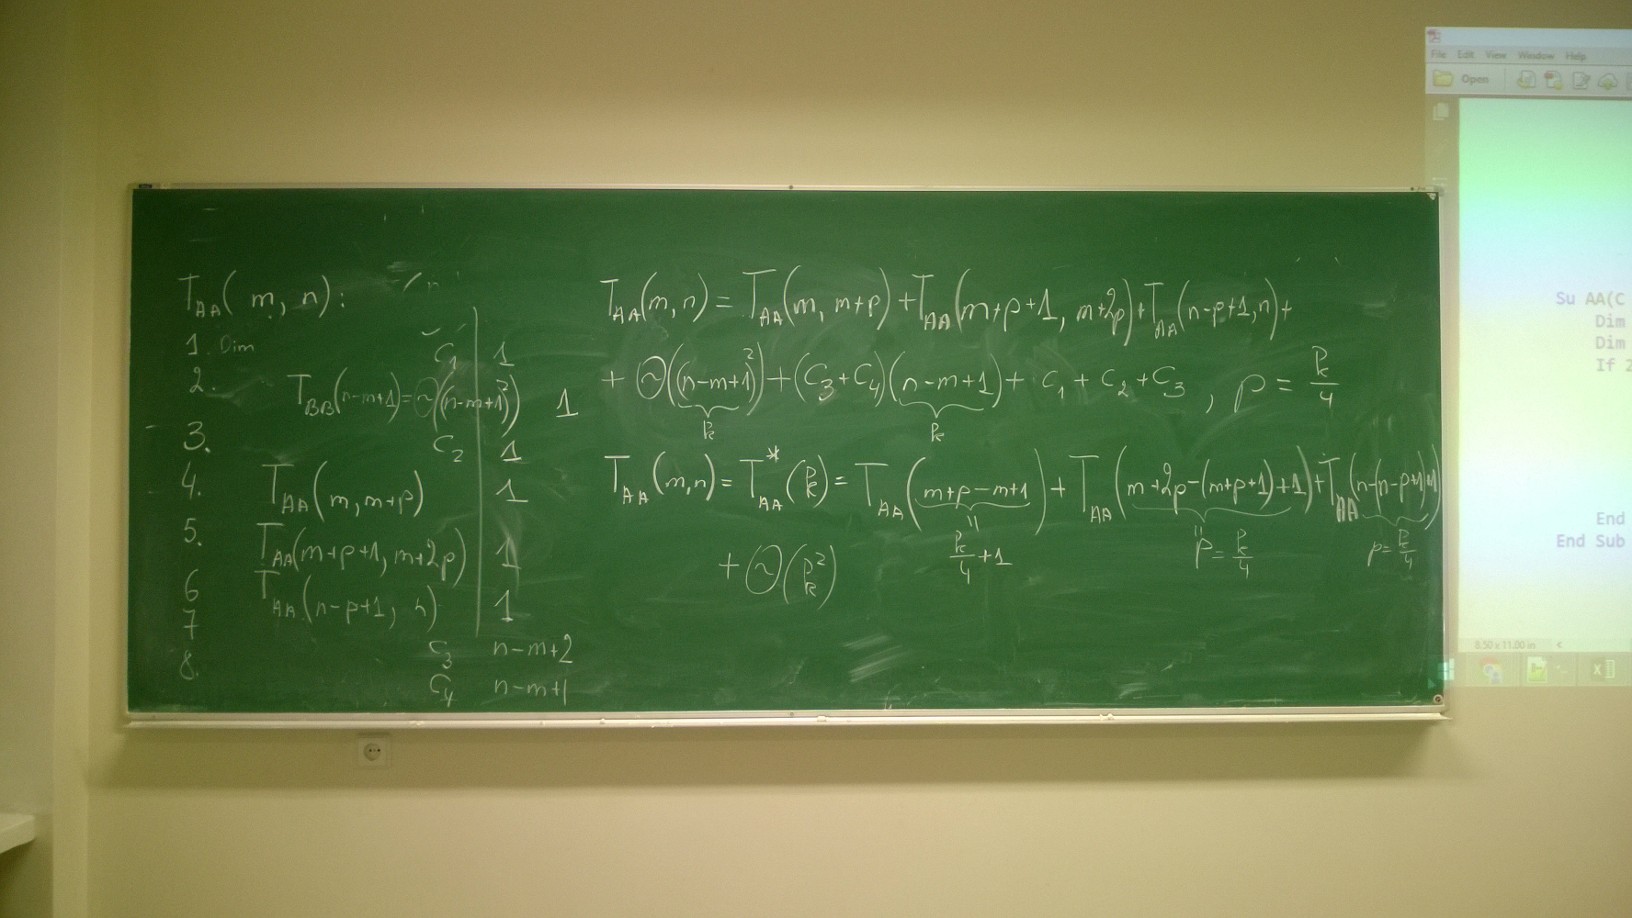 T_AA(m, n):
1. Dim C₁ 1
2. T_BB(n-m+1) = Θ((n-m+1)²) 1
3. C₂ 1
4. T_AA(m, m+p) 1
5. T_AA(m+p+1, m+2p) 1
6 T_AA(n-p+1, n) 1
7 C₃ n-m+2
8. C₄ n-m+1
T_AA(m, n) = T_AA(m, m+p) + T_AA(m+p+1, m+2p) + T_AA(n-p+1, n) +
+ Θ((n-m+1)²) + (C₃+C₄)(n-m+1) + C₁ + C₂ + C₃, p = k/4
k k
T_AA(m,n) = T*_AA(k) = T_AA(m+p-m+1) + T_AA(m+2p-(m+p+1)+1) + T_AA(n-(n-p+1)+1)
= k/4+1 = p = k/4 p = k/4
+ Θ(k²)
File Edit View Window Help
Open
Su AA(C
Dim
Dim
If 2
End
End Sub
8.50 x 11.00 in